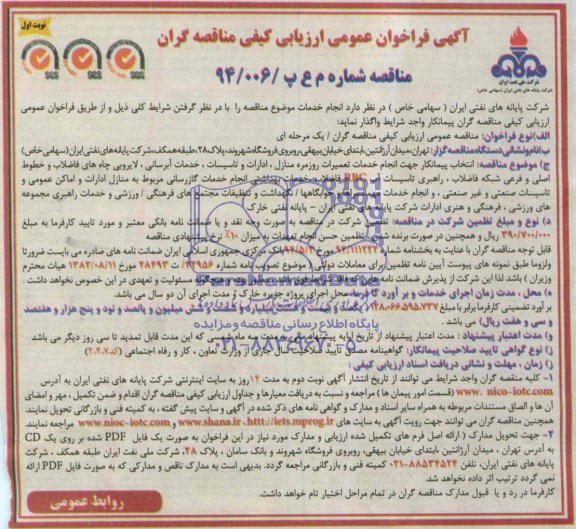 نوبت اول
آگهی فراخوان عمومی ارزیابی کیفی مناقصه گران
مناقصه شماره م ع پ /۹۴/۰۰۶
شرکت ملی نفت ایران
شرکت پایانه های نفتی ایران (سهامی خاص)
SGS SGS SGS
شرکت پایانه های نفتی ایران ( سهامی خاص ) در نظر دارد انجام خدمات موضوع مناقصه را با در نظر گرفتن شرایط کلی ذیل و از طریق فراخوان عمومی
ارزیابی کیفی مناقصه گران پیمانکار واجد شرایط واگذار نماید:
الف)نوع فراخوان: مناقصه عمومی ارزیابی کیفی مناقصه گران / یک مرحله ای
ب)نام ونشانی دستگاه مناقصه گزار: تهران،میدان آرژانتین،ابتدای خیابان بیهقی،روبروی فروشگاه شهروند،پلاک۲۸،طبقه همکف،شرکت پایانه های نفتی ایران(سهامی خاص)
ج) موضوع مناقصه: انتخاب پیمانکار جهت انجام خدمات تعمیرات روزمره منازل ، ادارات و تاسیسات ، خدمات آبرسانی ، لایروبی چاه های فاضلاب و خطوط
اصلی و فرعی شبکه فاضلاب ، راهبری تاسیسات RBC فاضلاب، خدمات بهداشتی انجام خدمات گازرسانی مربوط به منازل ادارات و اماکن عمومی و
تاسیسات صنعتی و غیر صنعتی ، و انجام خدمات جایگاهها / نگهداشت و تنظیفات مجتمع های فرهنگی / ورزشی و خدمات راهبری مجموعه
های ورزشی ، فرهنگی و هنری ادارات شرکت پایانه های نفتی ایران – پایانه نفتی خارک
د) نوع و مبلغ تضمین شرکت در مناقصه: تضمین شرکت در مناقصه به صورت وجه نقد و یا ضمانت نامه بانکی معتبر و مورد تایید کارفرما به مبلغ
۳۹۰/۷۰۰/۰۰۰ ریال و همچنین در صورت برنده شدن تضمین حسن انجام تعهدات به میزان ۱۰٪ نرخ پیشنهادی مناقصه
قابل توجه مناقصه گران با عنایه به بخشنامه شماره ۹۴/۱۱۱۲۲۲ مورخ ۹۴/۵/۳ بانک مرکزی جمهوری اسلامی ایران ضمانت نامه های صادره می بایست ضرورتا
ولزوما طبق نمونه های پیوست آیین نامه تضمین برای معاملات دولتی ( موضوع تصویب نامه شماره ۴۲۹۵۶/ ت ۲۸۴۹۳ مورخ ۱۳۸۲/۰۸/۱۱ هیات محترم
وزیران ) باشد لذا این شرکت از پذیرش ضمانت نامه های مسئولیت و تعهدی در این خصوص نخواهد داشت.
ه) محل ، مدت زمان اجرای خدمات و بر آورد کارفرما: محل اجرای پروژه جزیره خارک و مدت اجرای آن دو سال می باشد.
بر آورد تضمینی کارفرما برابر با مبلغ ۱۲۸.۰۶۶.۵۹۵.۷۳۷ ریال میلیون و پانصد و نود و پنج هزار و هفتصد
و سی و هفت ریال) می باشد .
و) مدت اعتبار پیشنهاد : مدت اعتبار پیشنهاد از تاریخ ارایه پیشنهاد سه ماه که این مدت قابل تمدید تا سی روز دیگر می باشد
ز) نوع گواهی تایید صلاحیت پیمانکار: گواهینامه تایید صلاحیت سال جاری از وزارت تعاون ، کار و رفاه اجتماعی (کد۲،۴،۷)
ح) زمان ، مهلت و نشانی دریافت اسناد ارزیابی کیفی :
۱- کلیه مناقصه گران واجد شرایط می توانند از تاریخ انتشار آگهی نوبت دوم به مدت ۱۴ روز به سایت اینترنتی شرکت پایانه های نفتی ایران به آدرس
www. nico-iotc.com (قسمت امور پیمان ها ) مراجعه و نسبت به دریافت معیارها و جداول ارزیابی کیفی مناقصه گران اقدام و ضمن تکمیل ، مهر و امضای
آن ها و الصاق مستندات مربوطه به همراه سایر اسناد و مدارک و گواهی نامه های ذکر شده در آگهی و سایت پیش گفته ، به کمیته فنی و بازرگانی تحویل نمایند.
همچنین مناقصه گران می توانند جهت رویت آگهی به سایت های http://iets.mporg.ir، www.shana.ir و www.nioc-iotc.com مراجعه نمایند.
۲- جهت تحویل مدارک ( ارائه اصل فرم های تکمیل شده ارزیابی و مدارک مورد نیاز در این فراخوان به صورت یک فایل PDF شده بر روی یک CD
به آدرس تهران ، میدان آرژانتین ،ابتدای خیابان بیهقی، روبروی فروشگاه شهروند و بانک سامان ، پلاک ۲۸، شرکت ملی نفت ایران طبقه همکف ، شرکت
پایانه های نفتی ایران، تلفن ۸۸۵۳۴۵۲۴-۰۲۱ کمیته فنی و بازرگانی مراجعه گردد. بدیهی است به مدارک ناقص و مدارکی که به صورت فایل PDF ارائه
نمی گردد ترتیب اثر داده نخواهد شد.
کارفرما در رد و یا قبول مدارک مناقصه گران در تمام مراحل اختیار تام خواهد داشت.
روابط عمومی
پایگاه اطلاع رسانی مناقصه و مزایده
۰۲۱-۸۸۳۴۹۶۷۰-۵